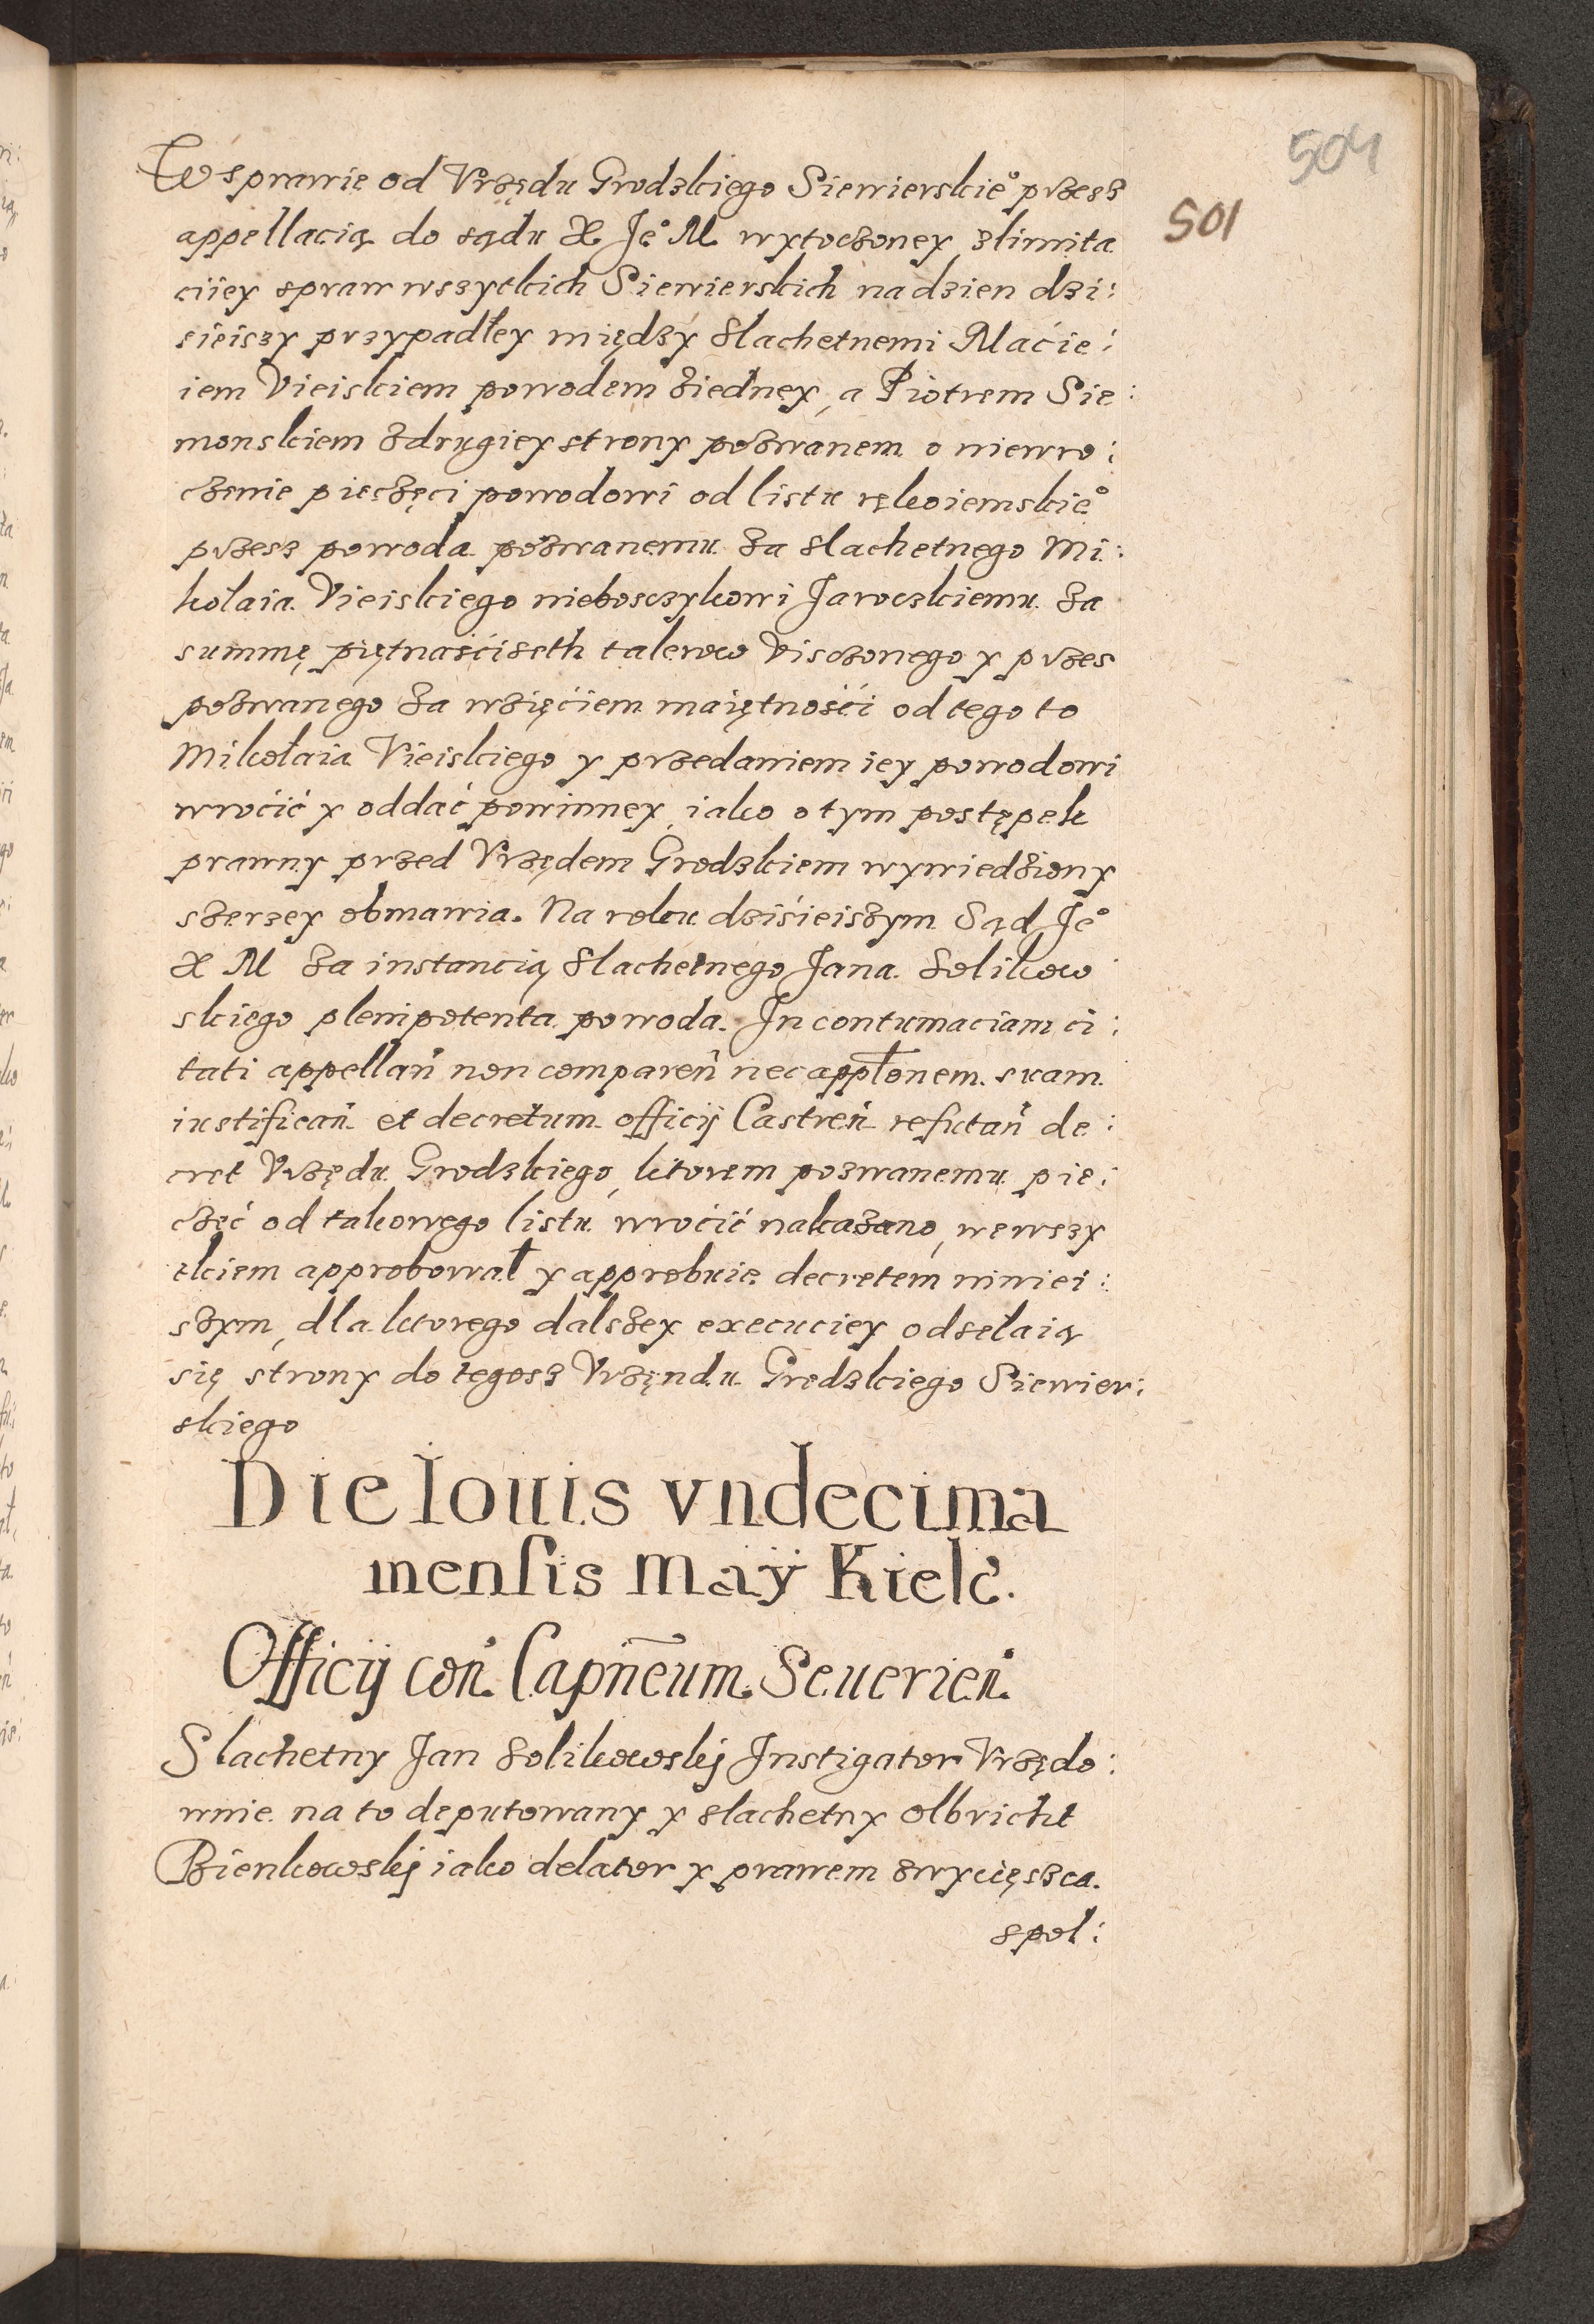 504
501
W sprawie od Vrzędu Grodzkiego Siewierskieº przesz
appellacią do sądu X Jeº M wytoczoney zlimita
ciiey spraw wszytkich Siewierskich na dzien dzi:
sieiszy przypadłey między slachetnemi Maćie:
iem Vieiskiem powodem ziedney, a Piotrem Sie:
monskiem zdrugiey strony pozwanem o niewro:
czenie pieczęci powodowi od listu rękoiemskieº
przesz powoda pozwanemu za slachetnego Mi:
kołaia Vieiskiego nieboszczykowi Jaroczkiemu za
summę piętnaśćiseth talerow Visczonego y przes
pozwanego za wzięćiem maiętnośći od tego to
Mikołaia Vieiskiego y przedaniem iey powodowi
wroćić y oddać powinney, iako o tym postępek
prawny przed Vrzędem Grodzkiem wywiedziony
szerzey obmawia. Na roku dziśieiszym Sąd Jeº
X M za instancią slachetnego Jana Solikow
skiego plenipotenta powoda. In contumaciam ci:
tati appellan̄ non comparen̄ nec appłonem suam
iustifican̄ et decretum officij Castren̄ refutan̄ de:
cret Vrzędu Grodzkiego, ktorem pozwanemu pie:
częć od takowego listu wroćić nakazano, wewszy
tkiem approbował y approbuie decretem niniei:
szym, dla ktorego dalszey execuciey odsełaią
się strony do tegosz Vrzęndu Grodzkiego Siewier:
skiego
Die Iouis vndecima
menſis Maÿ Kielc.
Officij con̄. Capn̄eum Seuerien̄.
Slachetny Jan Solikowskj Instigator Vrzędo:
wnie na to deputowany y slachetny Olbricht
Bienkowskj iako delator y prawem zwycięszca
spol: